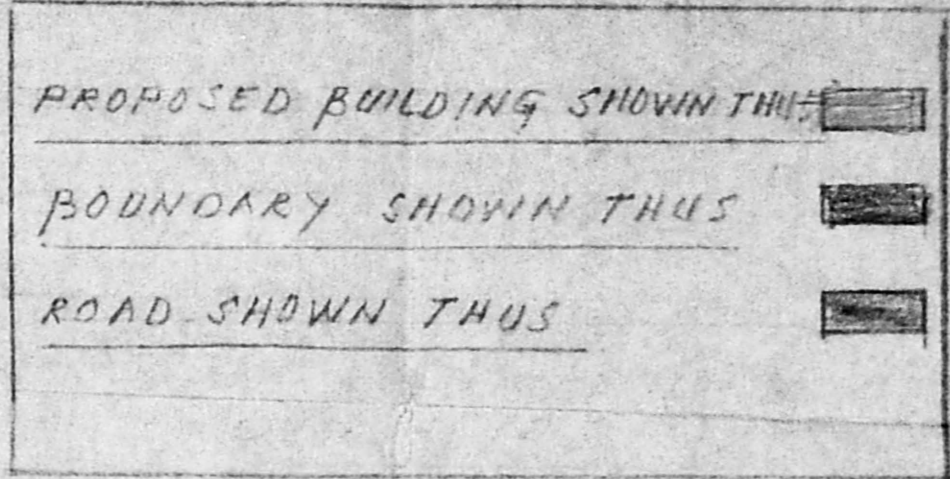 PROPOSED BUILDING SHOWN THUS
BOUNDARY SHOWN THUS
ROAD SHOWN THUS